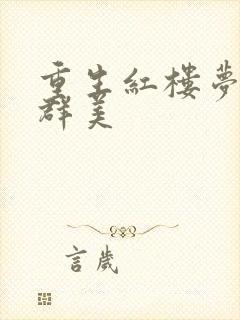 重生紅樓夢
群美
言歲